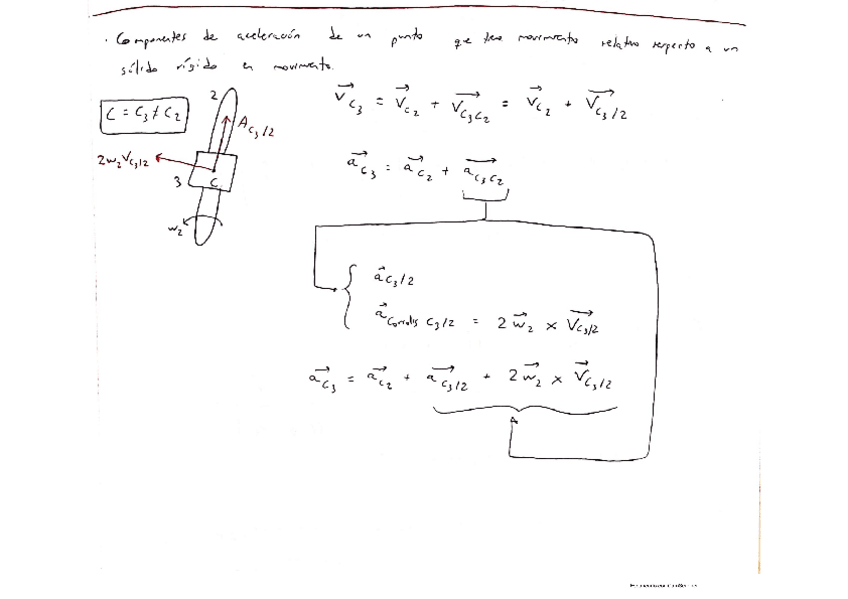 · Componentes de aceleración de un punto que tiene movimiento relativo respecto a un
sólido rígido en movimiento.
C = C₃ ≠ C₂
2
A_C₃/2
2w₂V_C₃/2
3
C
w₂
V⃗_C₃ = V⃗_C₂ + V⃗_C₃C₂ = V⃗_C₂ + V⃗_C₃/2
a⃗_C₃ = a⃗_C₂ + a⃗_C₃C₂
a⃗_C₃/2
a⃗_Coriolis C₃/2 = 2 w⃗₂ × V⃗_C₃/2
a⃗_C₃ = a⃗_C₂ + a⃗_C₃/2 + 2 w⃗₂ × V⃗_C₃/2